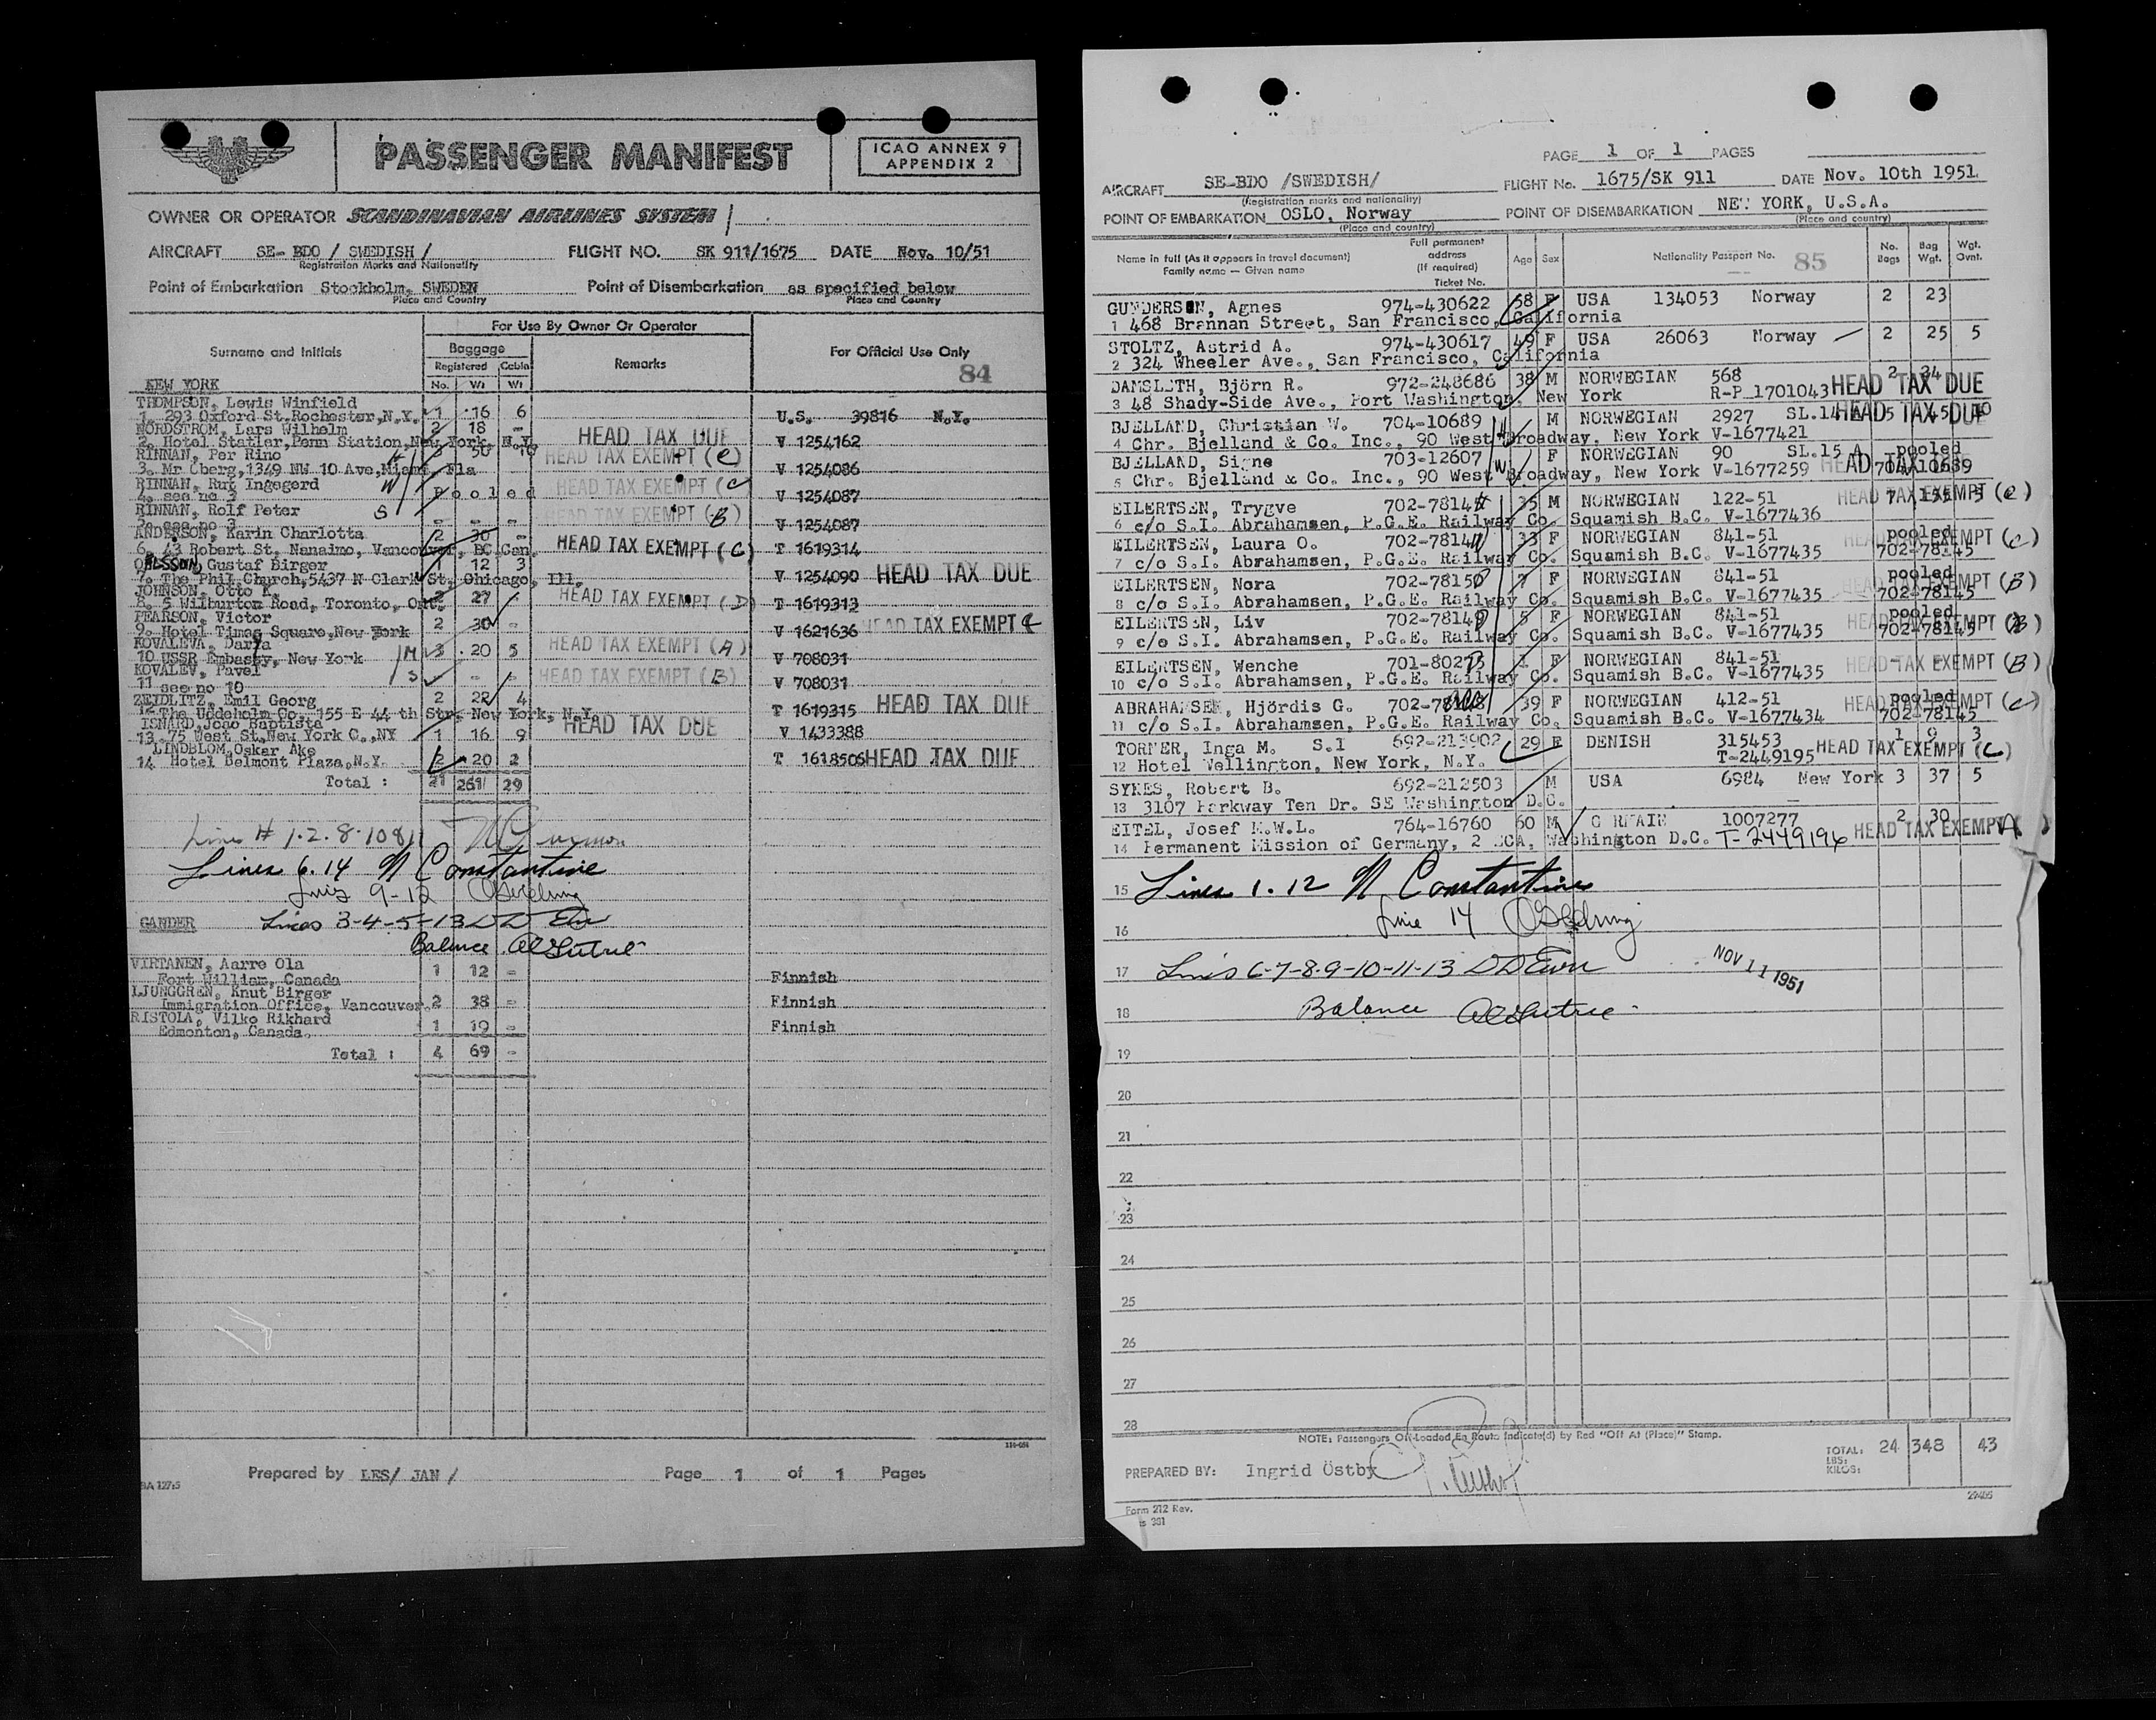 PASSENGER MANIFEST
ICAO ANNEX 9
APPENDIX 2
OWNER OR OPERATOR SCANDINAVIAN AIRLINES SYSTEM
AIRCRAFT SE- BDO / SWEDISH / FLIGHT NO. SK 911/1675 DATE Nov. 10/51
Registration Marks and Nationality
Point of Embarkation Stockholm, SWEDEN Point of Disembarkation as specified below
Place and Country Place and Country
For Use By Owner Or Operator
Surname and Initials Baggage Remarks For Official Use Only
Registered Cabin
No. Wt Wt
84
NEW YORK
THOMPSON, Lewis Winfield
1. 293 Oxford St.Rochester,N.Y. 1 16 6 U.S. 39816 N.Y.
NORDSTROM, Lars Wilhelm 2 18 -
2. Hotel Statler,Penn Station,New York, N.Y. HEAD TAX DUE V 1254162
RINNAN, Per Rino 50 10 HEAD TAX EXEMPT (C)
3. Mr Oberg,1349 NW 10 Ave,Miami, Fla V 1254086
RINNAN, Rut Ingegerd W HEAD TAX EXEMPT (C
4. see no 3 Pooled V 1254087
RINNAN, Rolf Peter S HEAD TAX EXEMPT (B)
see no 3 - - - V 1254087
ANDERSON, Karin Charlotta 2 30 -
6. 43 Robert St. Nanaimo, Vancouver, BC Can. HEAD TAX EXEMPT (C) T 1619314
Gustaf Birger 1 12 3
7. The Phil Church,5437 N Clark St. Chicago, Ill. V 1254090 HEAD TAX DUE
JOHNSON, Otto K. 2 27 -
8. 5 Wilburton Road, Toronto, Ont. HEAD TAX EXEMPT (D) T 1619312
PEARSON, Victor 2 30 -
9. Hotel Times Square,New York V 1621636 HEAD TAX EXEMPT C
KOVALEVA, Darya M 3 20 5 HEAD TAX EXEMPT (A)
10 USSR Embassy, New York V 708031
KOVALEV, Pavel S - - HEAD TAX EXEMPT (B)
11 see no 10 V 708031
ZEIDLITZ, Emil Georg 2 22 4
12 The Uddeholm Co. 155 E 44 th Str. New York, N.Y. T 1619315 HEAD TAX DUE
ISNARD,Joao Baptista HEAD TAX DUE
13. 75 West St.New York C.,NY 1 16 9 V 1433388
LINDBLOM,Oskar Ake
14 Hotel Belmont Plaza,N.Y. 2 20 2 T 1618506 HEAD TAX DUE
Total : 21 261 29
Lines # 1.2.8.10 & 11
Lines 6.14 N Constantine
Lines 9-12
GANDER Lines 3-4-5-13
Balance
VIRTANEN, Aarre Ola 1 12 - Finnish
Fort William, Canada
LJUNGGREN, Knut Birger
Immigration Office, Vancouver. 2 38 - Finnish
RISTOLA, Vilko Rikhard
Edmonton, Canada. 1 19 - Finnish
Total : 4 69 -
Prepared by LES/ JAN / Page 1 of 1 Pages
PAGE 1 OF 1 PAGES
AIRCRAFT SE-BDO /SWEDISH/ FLIGHT No. 1675/SK 911 DATE Nov. 10th 1951
(Registration marks and nationality)
POINT OF EMBARKATION OSLO, Norway POINT OF DISEMBARKATION NEW YORK, U.S.A.
(Place and country) (Place and country)
Name in full (As it appears in travel document) Family name — Given name Full permanent address (If required) Ticket No. Age Sex Nationality Passport No. 85 No. Bags Bag Wgt. Wgt. Ovnt.
GUNDERSEN, Agnes 974-430622 68 F USA 134053 Norway 2 23
1 468 Brannan Street, San Francisco, California
STOLTZ, Astrid A. 974-430617 49 F USA 26063 Norway 2 25 5
2 324 Wheeler Ave., San Francisco, California
DAMSLETH, Björn R. 972-248686 38 M NORWEGIAN 568 2 34
3 48 Shady-Side Ave., Port Washington, New York R-P 1701043 HEAD TAX DUE
BJELLAND, Christian W. 704-10689 M NORWEGIAN 2927 SL.14 A 5 45 10 HEAD TAX DUE
4 Chr. Bjelland & Co. Inc., 90 West Broadway, New York V-1677421
BJELLAND, Signe 703-12607 W F NORWEGIAN 90 SL.15 A pooled
5 Chr. Bjelland & Co. Inc., 90 West Broadway, New York V-1677259 HEAD TAX DUE 704-10689
EILERTSEN, Trygve 702-78145 35 M NORWEGIAN 122-51 HEAD TAX EXEMPT (C) 7 155 5
6 c/o S.I. Abrahamsen, P.G.E. Railway Co. Squamish B.C. V-1677436
EILERTSEN, Laura O. 33 F NORWEGIAN 841-51 pooled HEAD TAX EXEMPT (C)
7 c/o S.I. Abrahamsen, P.G.E. Railway Co. Squamish B.C. V-1677435 702-78145
EILERTSEN, Nora 702-78150 7 F NORWEGIAN 841-51 pooled HEAD TAX EXEMPT (B)
8 c/o S.I. Abrahamsen, P.G.E. Railway Co. Squamish B.C. V-1677435 702-78145
EILERTSEN, Liv 702-78149 5 F NORWEGIAN 841-51 pooled HEAD TAX EXEMPT (B)
9 c/o S.I. Abrahamsen, P.G.E. Railway Co. Squamish B.C. V-1677435 702-78145
EILERTSEN, Wenche 701-80273 1 F NORWEGIAN 841-51 HEAD TAX EXEMPT (B)
10 c/o S.I. Abrahamsen, P.G.E. Railway Co. Squamish B.C. V-1677435
ABRAHAMSEN, Hjördis G. 39 F NORWEGIAN 412-51 pooled HEAD TAX EXEMPT (C)
11 c/o S.I. Abrahamsen, P.G.E. Railway Co. Squamish B.C. V-1677434 702-78145
TORNER, Inga M. S.1 692-213902 29 F DENISH 315453 1 9 3
12 Hotel Wellington, New York, N.Y. T-2449195 HEAD TAX EXEMPT (C)
SYKES, Robert B. 692-212503 M USA 6984 New York 3 37 5
13 3107 Parkway Ten Dr. SE Washington D.C.
EITEL, Josef M.W.L. 764-16760 60 M 1007277 2 30
14 Permanent Mission of Germany, 2 ECA, Washington D.C. T-2449196 HEAD TAX EXEMPT A
15 Lines 1.12 N Constantine
Line 14
16
17 Lines 6-7-8-9-10-11-13
NOV 11 1951
18 Balance
19
20
21
22
23
24
25
26
27
28
NOTE: Passengers Off-Loaded En Route Indicate(d) by Red "Off At (Place)" Stamp.
TOTAL: 24 348 43
LBS:
KILOS:
PREPARED BY: Ingrid Östby
Form 212 Rev.